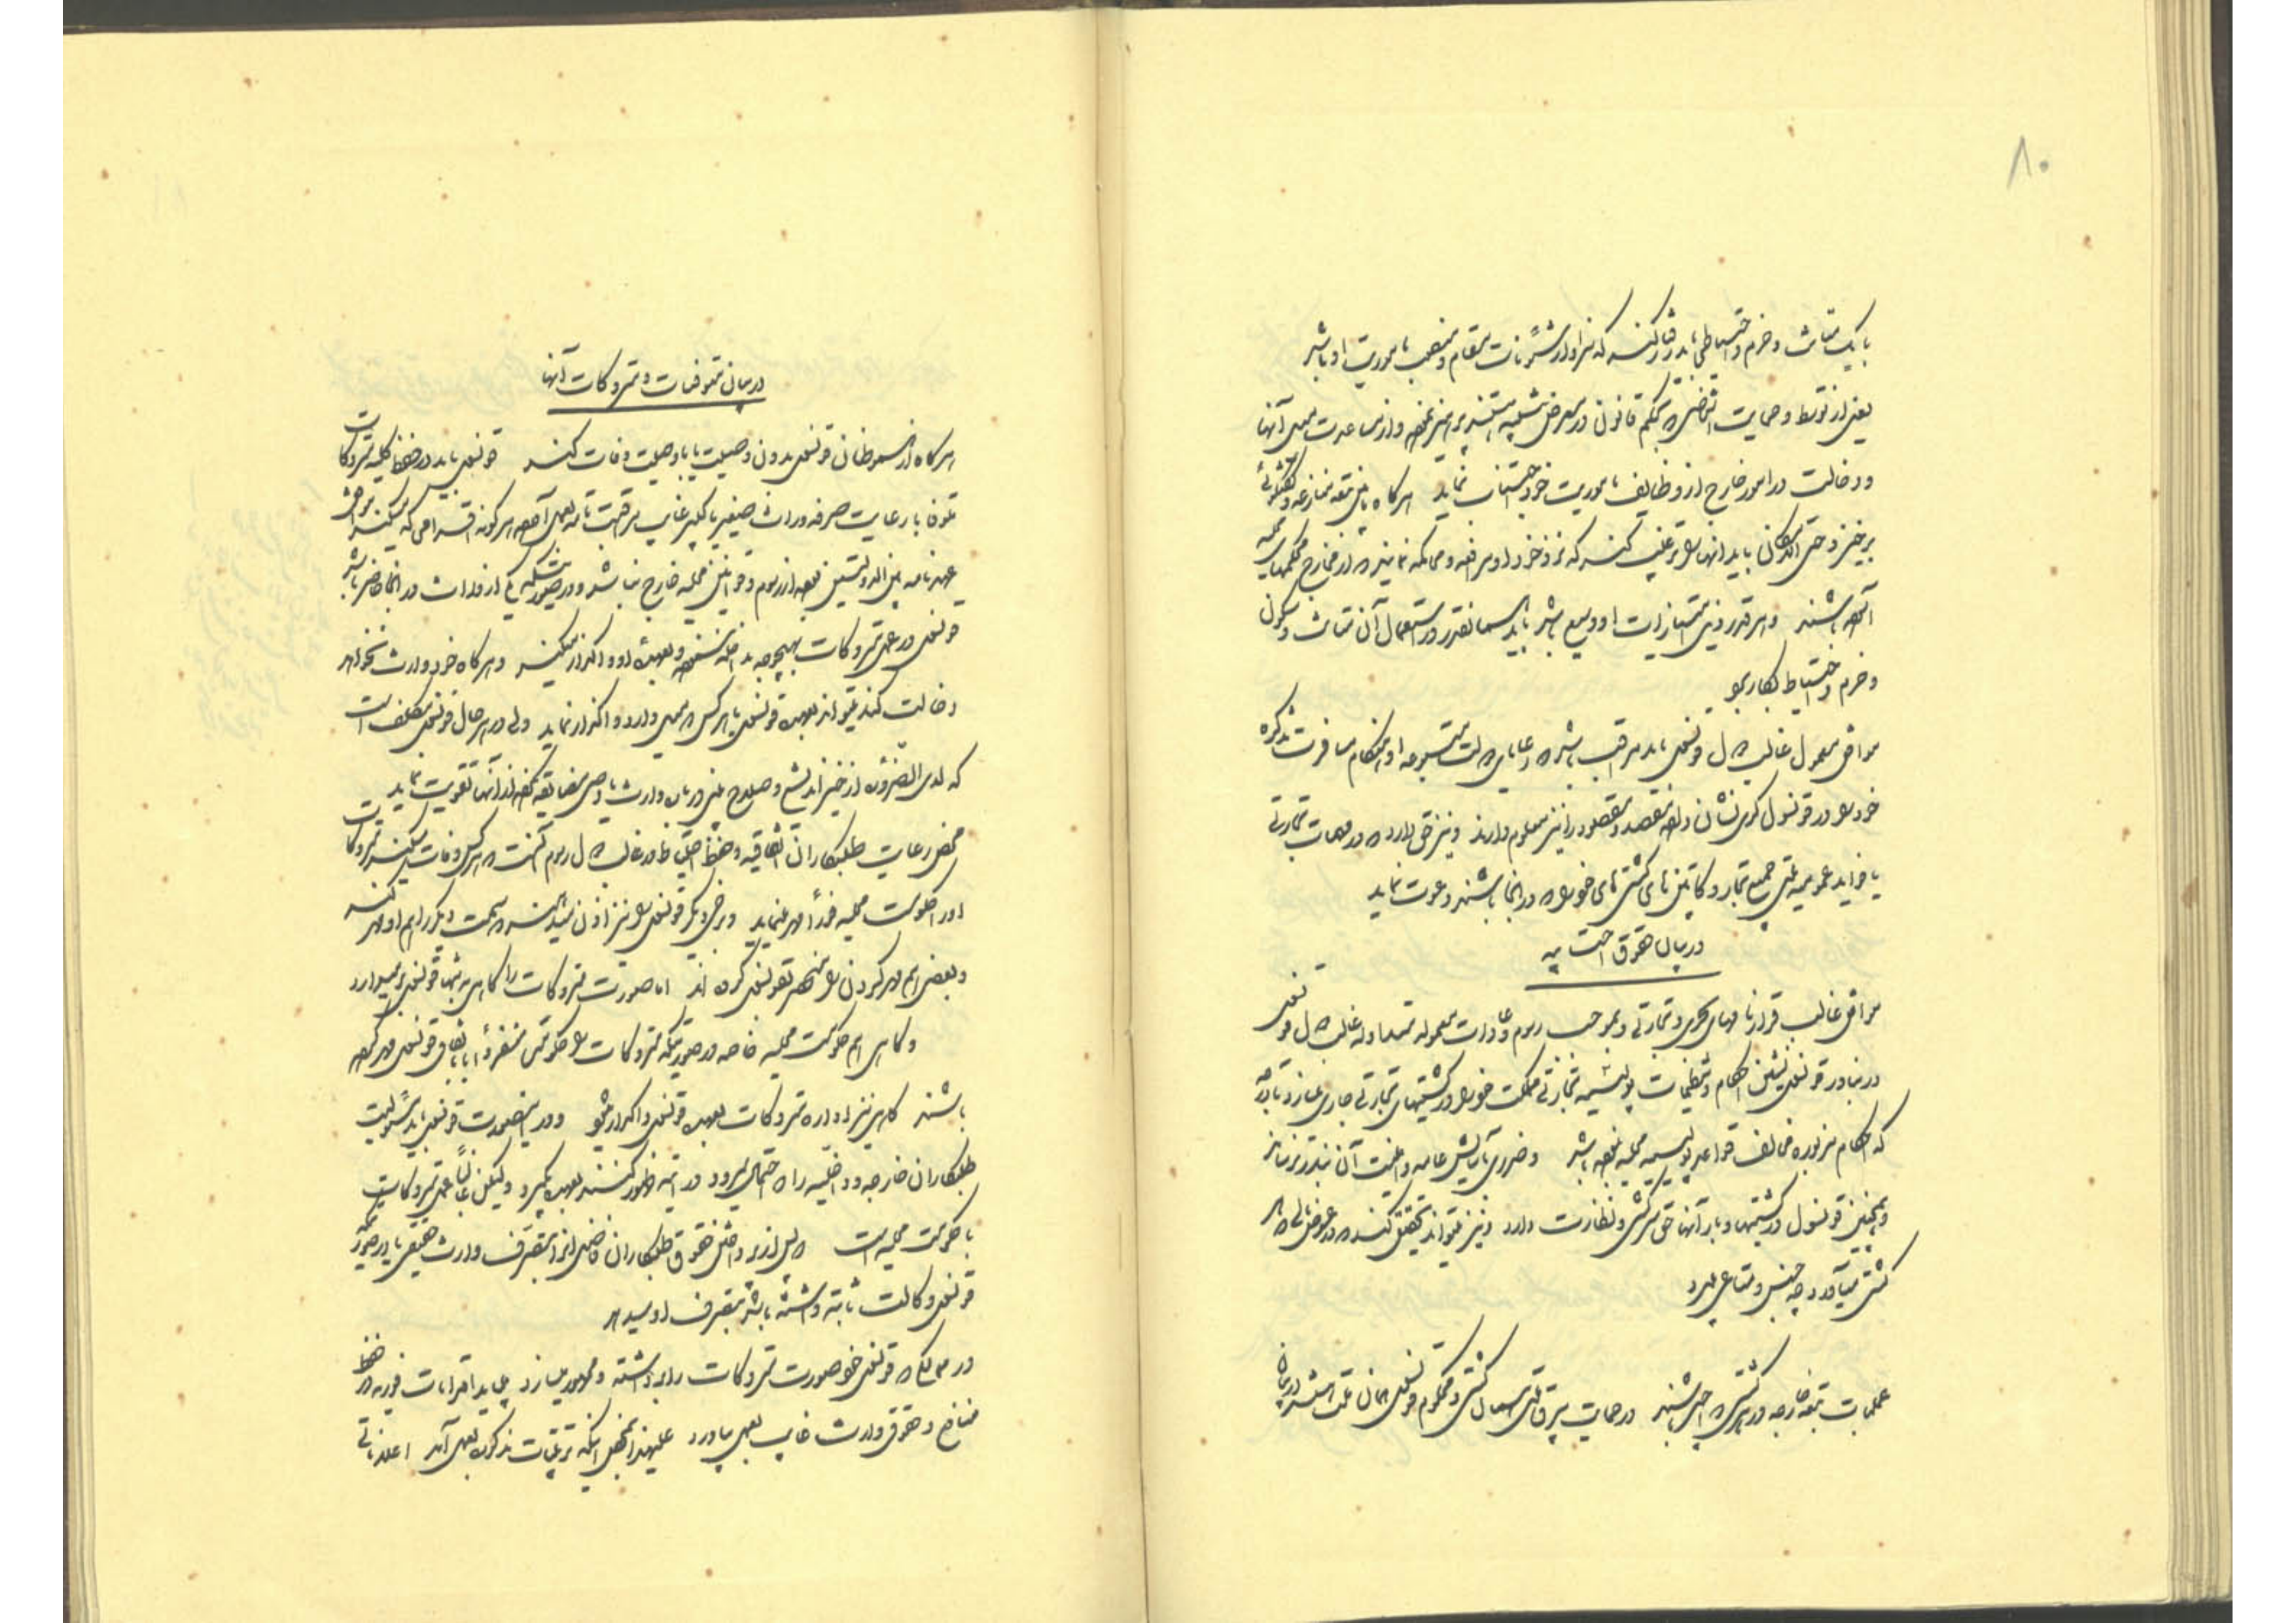 ۸۰
با یک متانت و حزم و احتیاطی باید رفتار کند که سزاوار شئونات مقام و منصب ماموریت او باشد
یعنی از توسط و حمایت اشخاصی که بحکم قانون در معرض هستند پرهیز نموده و از مساعدت بیمعنی آنها
و دخالت در امور خارج از وظایف ماموریت خود اجتناب نماید هرگاه مابین تبعه منازعه و گفتگوئی
برخیزد حتی الامکان باید آنها را ترغیب کند که نزد خود او مرافعه و محاکمه نمایند که از مخارج محکمهای محلیه
آسوده باشند و هر قدر امتیازات او وسیع باشد باید همانقدر در استعمال آن متانت و سکون
و حزم و احتیاط بکار برد
موافق معمول غالب دول قونسول باید مراقب باشد که رعایای دولت متبوعه او هنگام مسافرت تذکره
خود را در قونسولگری نشان داده مقصد و مقصود را نیز معلوم دارند و نیز حق دارد که در مهمات تجارتی
یا فواید عمومیه ملتی جمیع تجار و کاپیتن های کشتی های خود را که در آنجا باشند دعوت نماید
در بیان حقوق احتسابیه
موافق غالب قرارنامهای بحری و تجارتی و بموجب رسوم و عادات معموله متداوله غالب دول قونسول
در بنادر قونسول نشین احکام و تنظیمات پولیسیه تجارتی مملکت خود را در کشتیهای تجارتی جاری میسازد تا درجه
که احکام مزبوره مخالف قواعد پولیسیه محلیه نبوده باشد و ضرری بآسایش عامه و امنیت آن بندر نرساند
و همچنین قونسول در کشتیها و بار آنها حق سرکشی و نظارت دارد و نیز میتواند تحقیق کند که در عوض مالی که
کشتی میآورد چه جنس و متاعی میبرد
عملجات تبعه خارجه در هر کشتی که اجیر باشند در حمایت بیرق آن کشتی و محکوم قونسول همان ملت هستند
در بیان متوفیات و متروکات آنها
هرگاه از هموطنان قونسول بدون وصیت یا با وصیت وفات کند قونسول باید در حفظ کلیه متروکات
متوفا با رعایت صرفه وراث صغیر یا کبیر غایب مراقبت تامه بعمل آورده هر گونه اقدامی که میکند موافق
عهدنامه بین الدولتین بوده از رسوم و قوانین محلیه خارج نباشد و در صورتیکه یکی از وراث در آنجا حاضر باشد
قونسول در عمل متروکات بهیچوجه مداخله ننموده و بعهده او واگذار میکند و هرگاه خود وارث نخواهد
دخالت کند میتواند بعهده قونسول یا هر کس که میل دارد واگذار نماید ولی در هر حال قونسول مکلف است
که لدی الضروره از خیر اندیشی و صلاح بینی درباره وارث یا وصی مضایقه نکرده از آنها تقویت نماید
محض رعایت طلبکاران اتفاقیه و حفظ اصل غالب دول رسم آنست که هر کس وفات میکند متروکات
او را حکومت محلیه فوراً مهر مینماید و برخی دیگر قونسول را نیز اذن میدهند که سمت دیگر را هم او مهر کند
و بعضی هم مهر کردن را منحصر بقونسول کرده اند اما صورت متروکات را گاهی به تنهائی قونسول بر میدارد
و گاهی هم حکومت محلیه خاصه در صورتیکه متروکات را حکومت منفرداً یا باتفاق قونسول مهر کرده
باشند گاهی نیز اداره متروکات بعهده قونسول واگذار میشود و در اینصورت قونسول باید مسئولیت
طلبکاران خارجه و داخلیه را که احتمال میرود در آتیه ظهور کنند بعهده بگیرد ولیکن غالباً عمل متروکات
با حکومت محلیه است که پس از پرداختن حقوق طلبکاران فاضل آنرا بتصرف وارث حقیقی یا در صورتیکه
قونسول وکالت ثابته داشته باشد بتصرف او میدهد
در ممالکی که قونسول خود صورت متروکات را برداشته و ممهور میسازد باید اقدامات فوریه در حفظ
منافع و حقوق وارث غایب بعمل بیاورد علیهذا بمحض اینکه ترتیبات مذکوره بعمل آمد اعلاناتی